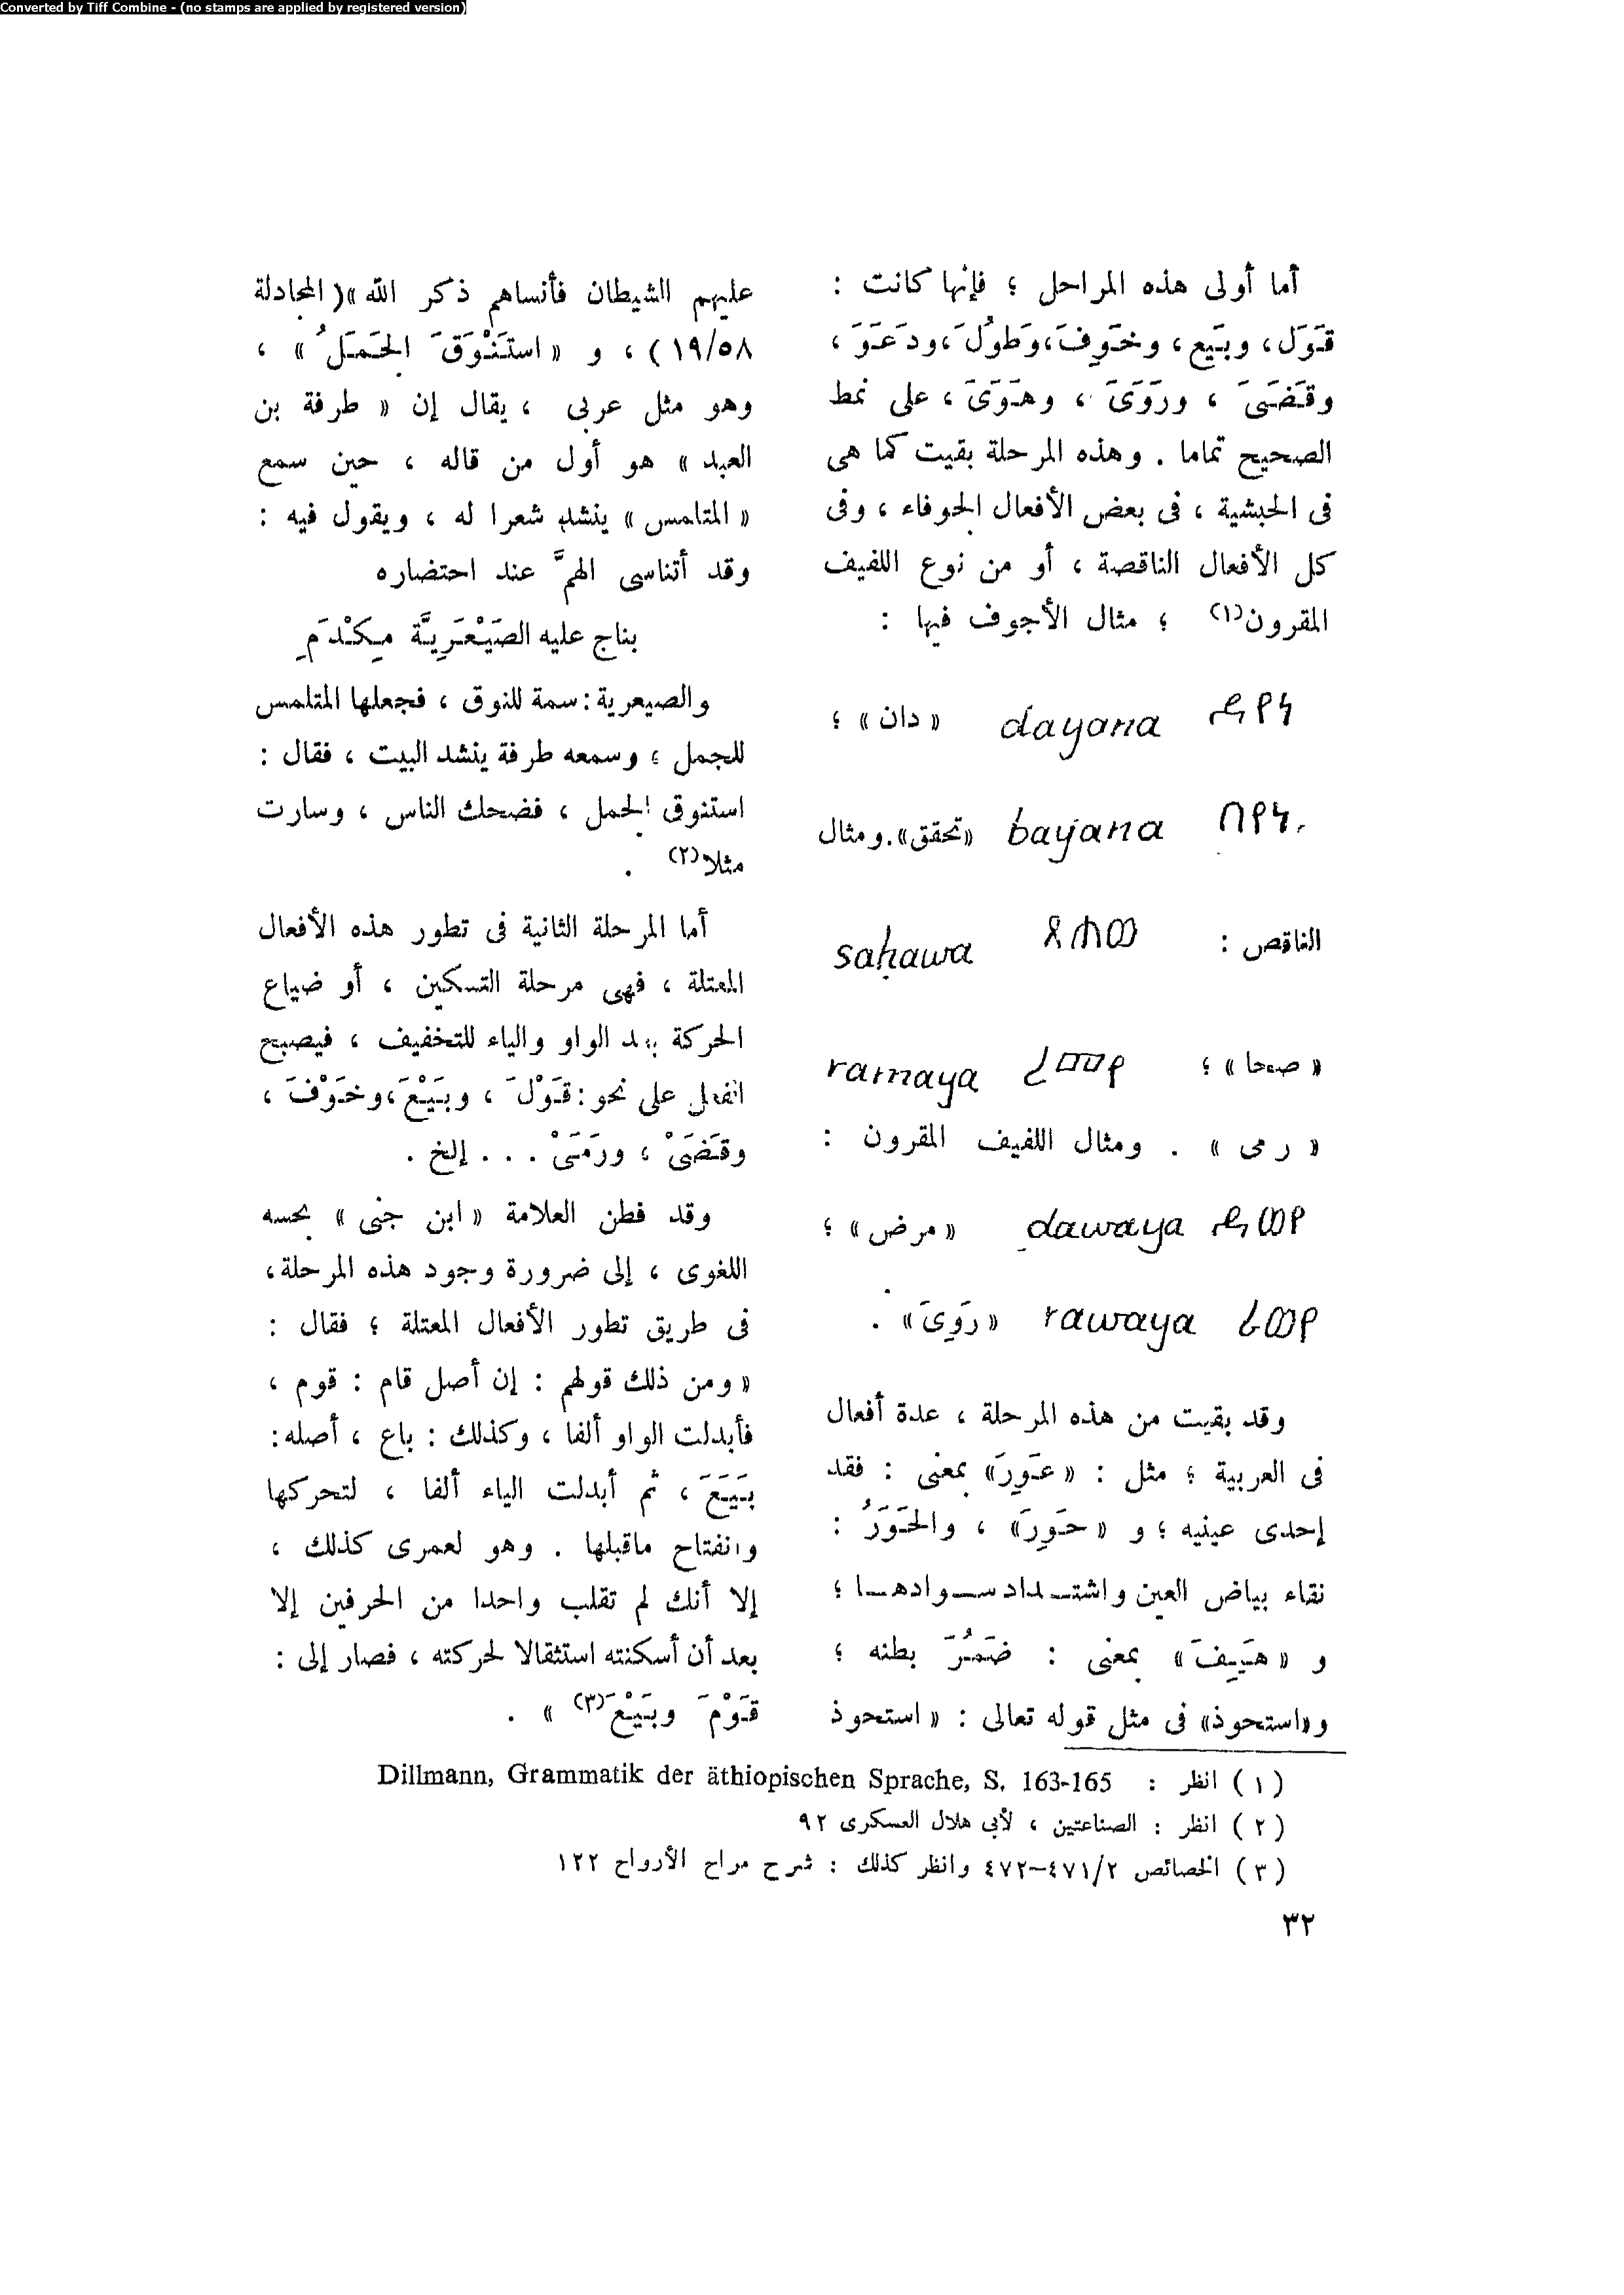 Converted by Tiff Combine - (no stamps are applied by registered version)
أما أولى هذه المراحل ؛ فإنها كانت :
قَوَل، وبَيَع، وخَوِفَ، وطَوُلَ، ودَعَوَ ،
وقَضَىَ ، ورَوَىَ ، وهَوَىَ ، على نمط
الصحيح تماما . وهذه المرحلة بقيت كما هى
فى الحبشية ، فى بعض الأفعال الجوفاء ، وفى
كل الأفعال الناقصة ، أو من نوع اللفيف
المقرون(١) ؛ مثال الأجوف فيها :
ደየነ dayana « دان » ؛
በየነ bayana «تحقق». ومثال
الناقص : ጸሐወ saḥawa
« صحا » ؛ ረመየ ramaya
« رمى » . ومثال اللفيف المقرون :
ደወየ dawaya « مرض » ؛
ረወየ rawaya « رَوِىَ » .
وقد بقيت من هذه المرحلة ، عدة أفعال
فى العربية ؛ مثل : « عَوِرَ» بمعنى : فقد
إحدى عينيه ؛ و « حَوِرَ» ، والحَوَرُ :
نقاء بياض العين واشتداد سوادها ؛
و « هَيِفَ » بمعنى : ضَمُرَ بطنه ؛
و«استحوذ» فى مثل قوله تعالى : « استحوذ
عليهم الشيطان فأنساهم ذكر الله »( المجادلة
١٩/٥٨ ) ، و « استَنْوَقَ الجَمَلُ » ،
وهو مثل عربى ، يقال إن « طرفة بن
العبد » هو أول من قاله ، حين سمع
« المتلمس » ينشد شعرا له ، ويقول فيه :
وقد أتناسى الهمَّ عند احتضاره
بناج عليه الصَيْعَرِيَّة مِكْدَمِ
والصيعرية : سمة للنوق ، فجعلها المتلمس
للجمل ؛ وسمعه طرفة ينشد البيت ، فقال :
استنوق الجمل ، فضحك الناس ، وسارت
مثلا(٢) .
أما المرحلة الثانية فى تطور هذه الأفعال
المعتلة ، فهى مرحلة التسكين ، أو ضياع
الحركة بعد الواو والياء للتخفيف ، فيصبح
الفعل على نحو : قَوْلَ ، وبَيْعَ، وخَوْفَ ،
وقَضَىْ ، ورَمَىْ . . . إلخ .
وقد فطن العلامة « ابن جنى » بحسه
اللغوى ، إلى ضرورة وجود هذه المرحلة،
فى طريق تطور الأفعال المعتلة ؛ فقال :
« ومن ذلك قولهم : إن أصل قام : قوم ،
فأبدلت الواو ألفا ، وكذلك : باع ، أصله:
بَيَعَ ، ثم أبدلت الياء ألفا ، لتحركها
وانفتاح ماقبلها . وهو لعمرى كذلك ،
إلا أنك لم تقلب واحدا من الحرفين إلا
بعد أن أسكنته استثقالا لحركته ، فصار إلى :
قَوْمَ وبَيْعَ(٣) » .
( ١ ) انظر : Dillmann, Grammatik der äthiopischen Sprache, S. 163-165
( ٢ ) انظر : الصناعتين ، لأبى هلال العسكرى ٩٢
( ٣ ) الخصائص ٤٧١/٢–٤٧٢ وانظر كذلك : شرح مراح الأرواح ١٢٢
٣٢